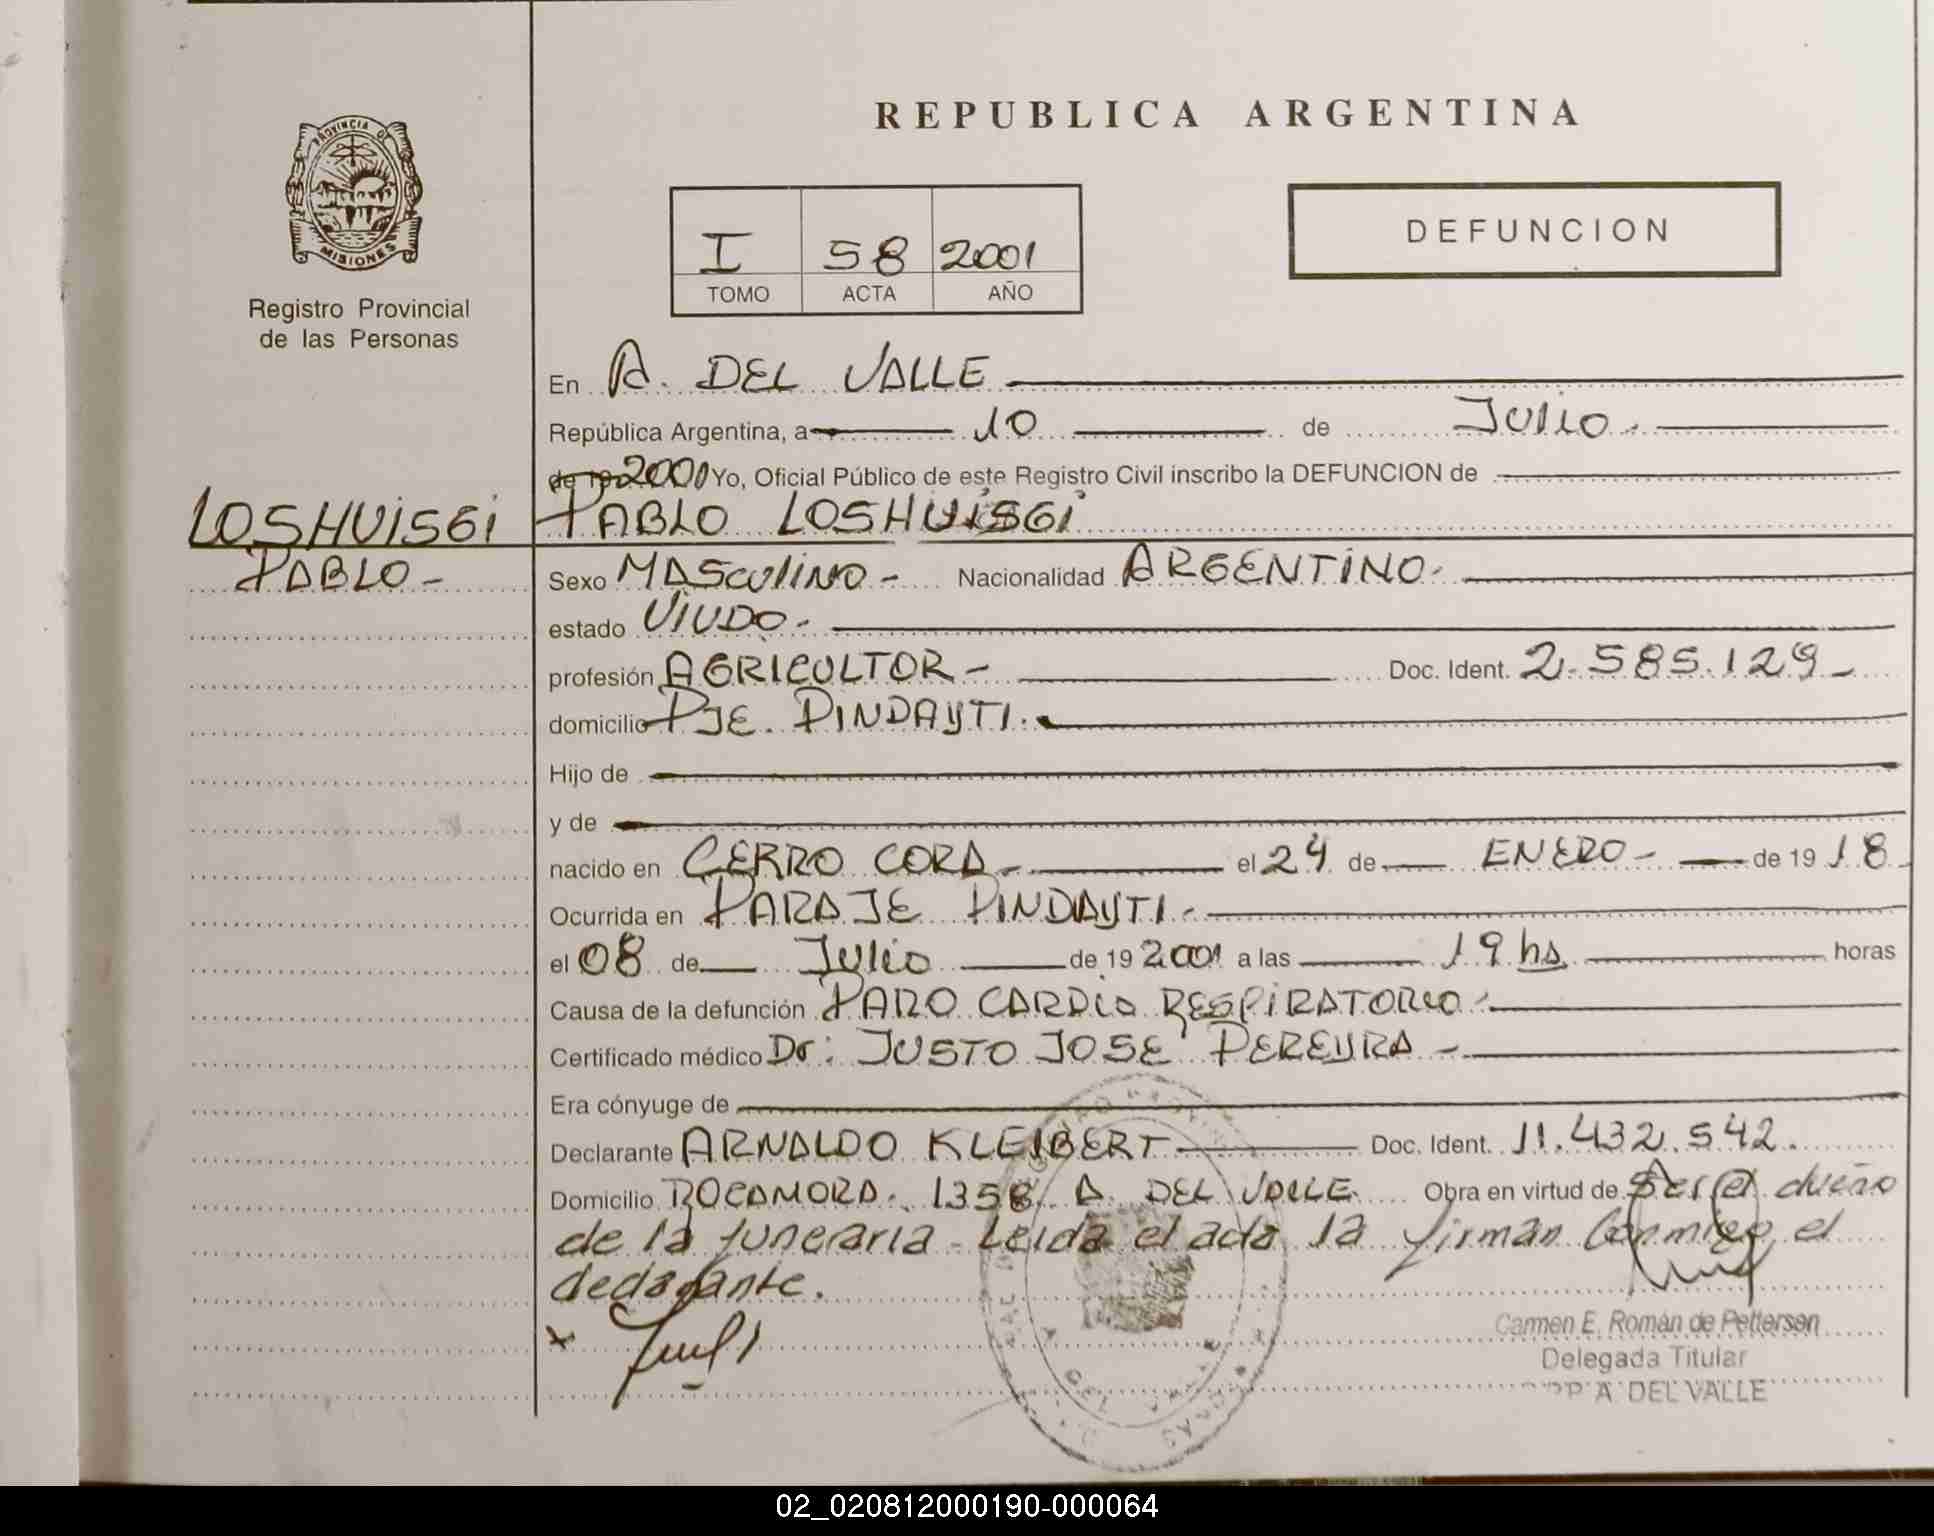 PROVINCIA DE
MISIONES
Registro Provincial
de las Personas
LOSHUISGI
PABLO -
REPUBLICA ARGENTINA
I 58 2001
TOMO ACTA AÑO
DEFUNCION
En A. DEL VALLE
República Argentina, a 10 de Julio
de 19 2001 Yo, Oficial Público de este Registro Civil inscribo la DEFUNCION de
PABLO LOSHUISGI
Sexo MASCULINO - Nacionalidad ARGENTINO
estado VIUDO -
profesión AGRICULTOR - Doc. Ident. 2.585.129 -
domicilio PJE. PINDAYTI.
Hijo de
y de
nacido en CERRO CORA - el 24 de ENERO - de 19 18
Ocurrida en PARAJE PINDAYTI -
el 08 de Julio de 19 2001 a las 19 hs horas
Causa de la defunción PARO CARDIO RESPIRATORIO -
Certificado médico Dr: JUSTO JOSE PEREYRA -
Era cónyuge de
Declarante ARNALDO KLEIBERT Doc. Ident. 11.432.542.
Domicilio ROCAMORA. 1358 A. DEL VALLE Obra en virtud de Ser el dueño
de la funeraria - Leida el acta la firman Conmigo el
declarante.
x
Carmen E. Román de Pettersen
Delegada Titular
A. DEL VALLE
02_020812000190-000064